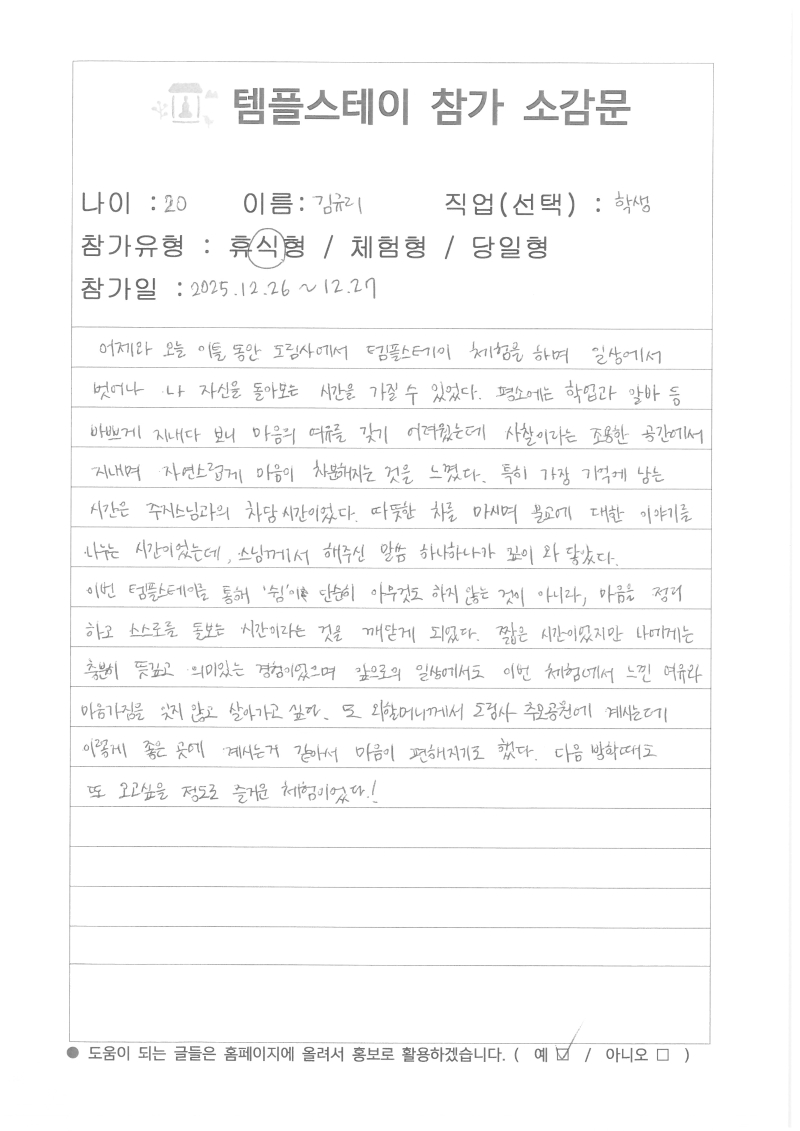 템플스테이 참가 소감문
나이 : 20 이름: 김규리 직업(선택) : 학생
참가유형 : 휴식형 / 체험형 / 당일형
참가일 : 2025.12.26 ~ 12.27
어제와 오늘 이틀 동안 도림사에서 템플스테이 체험을 하며 일상에서
벗어나 나 자신을 돌아보는 시간을 가질 수 있었다. 평소에는 학업과 알바 등
바쁘게 지내다 보니 마음의 여유를 갖기 어려웠는데 사찰이라는 조용한 공간에서
지내며 자연스럽게 마음이 차분해지는 것을 느꼈다. 특히 가장 기억에 남는
시간은 주지스님과의 차담시간이었다. 따뜻한 차를 마시며 불교에 대한 이야기를
나누는 시간이었는데, 스님께서 해주신 말씀 하나하나가 깊이 와 닿았다.
이번 템플스테이를 통해 '쉼'이 단순히 아무것도 하지 않는 것이 아니라, 마음을 정리
하고 스스로를 돌보는 시간이라는 것을 깨닫게 되었다. 짧은 시간이었지만 나에게는
충분히 뜻깊고 의미있는 경험이었으며 앞으로의 일상에서도 이번 체험에서 느낀 여유와
마음가짐을 잊지 않고 살아가고 싶다. 또 외할머니께서 도림사 추모공원에 계시는데
이렇게 좋은 곳에 계시는거 같아서 마음이 편해지기도 했다. 다음 방학때도
또 오고싶을 정도로 즐거운 체험이었다.!
● 도움이 되는 글들은 홈페이지에 올려서 홍보로 활용하겠습니다. ( 예 ☑ / 아니오 □ )